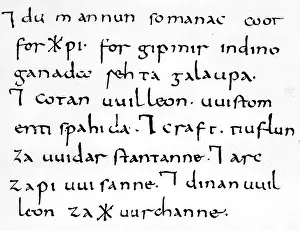 ⁊ du mannun so manac coot
for ᚼpi. for gipmir indino
ganadeo rehta galaupa.
⁊ cotan uuilleon. uuistom
enti spahida. ⁊ craft. tiuflun
za uuidar stantanne. ⁊ arc
za pi uuisanne. ⁊ dinan uuil
leon za ᚼ uurchanne.